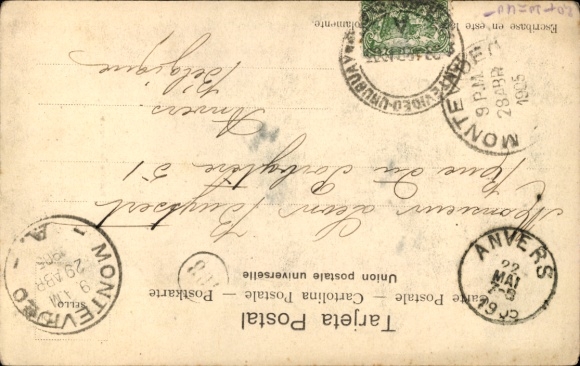 Tarjeta Postal
Carte Postale — Cartolina Postale — Postkarte
Union postale universelle
SELLO
MONTEVIDEO
A.
29 ABR
9 AM
ANVERS
22
MAI
7-8
19
Monsieur Léon Buyssert
Rue du 51
Anvers
Belgique
MONTEVIDEO
9 P.M.
28 ABR
1905
MONTEVIDEO-URUGUAY
Escribase en este lado solamente.